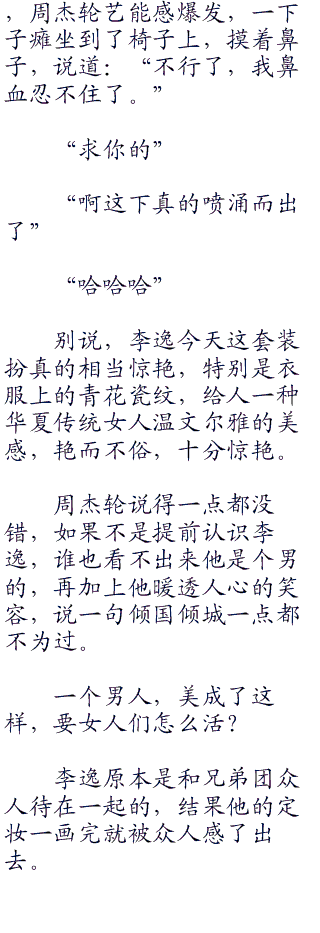 ，周杰轮艺能感爆发，一下
子瘫坐到了椅子上，摸着鼻
子，说道：“不行了，我鼻
血忍不住了。”
“求你的”
“啊这下真的喷涌而出
了”
“哈哈哈”
别说，李逸今天这套装
扮真的相当惊艳，特别是衣
服上的青花瓷纹，给人一种
华夏传统女人温文尔雅的美
感，艳而不俗，十分惊艳。
周杰轮说得一点都没
错，如果不是提前认识李
逸，谁也看不出来他是个男
的，再加上他暖透人心的笑
容，说一句倾国倾城一点都
不为过。
一个男人，美成了这
样，要女人们怎么活？
李逸原本是和兄弟团众
人待在一起的，结果他的定
妆一画完就被众人感了出
去。